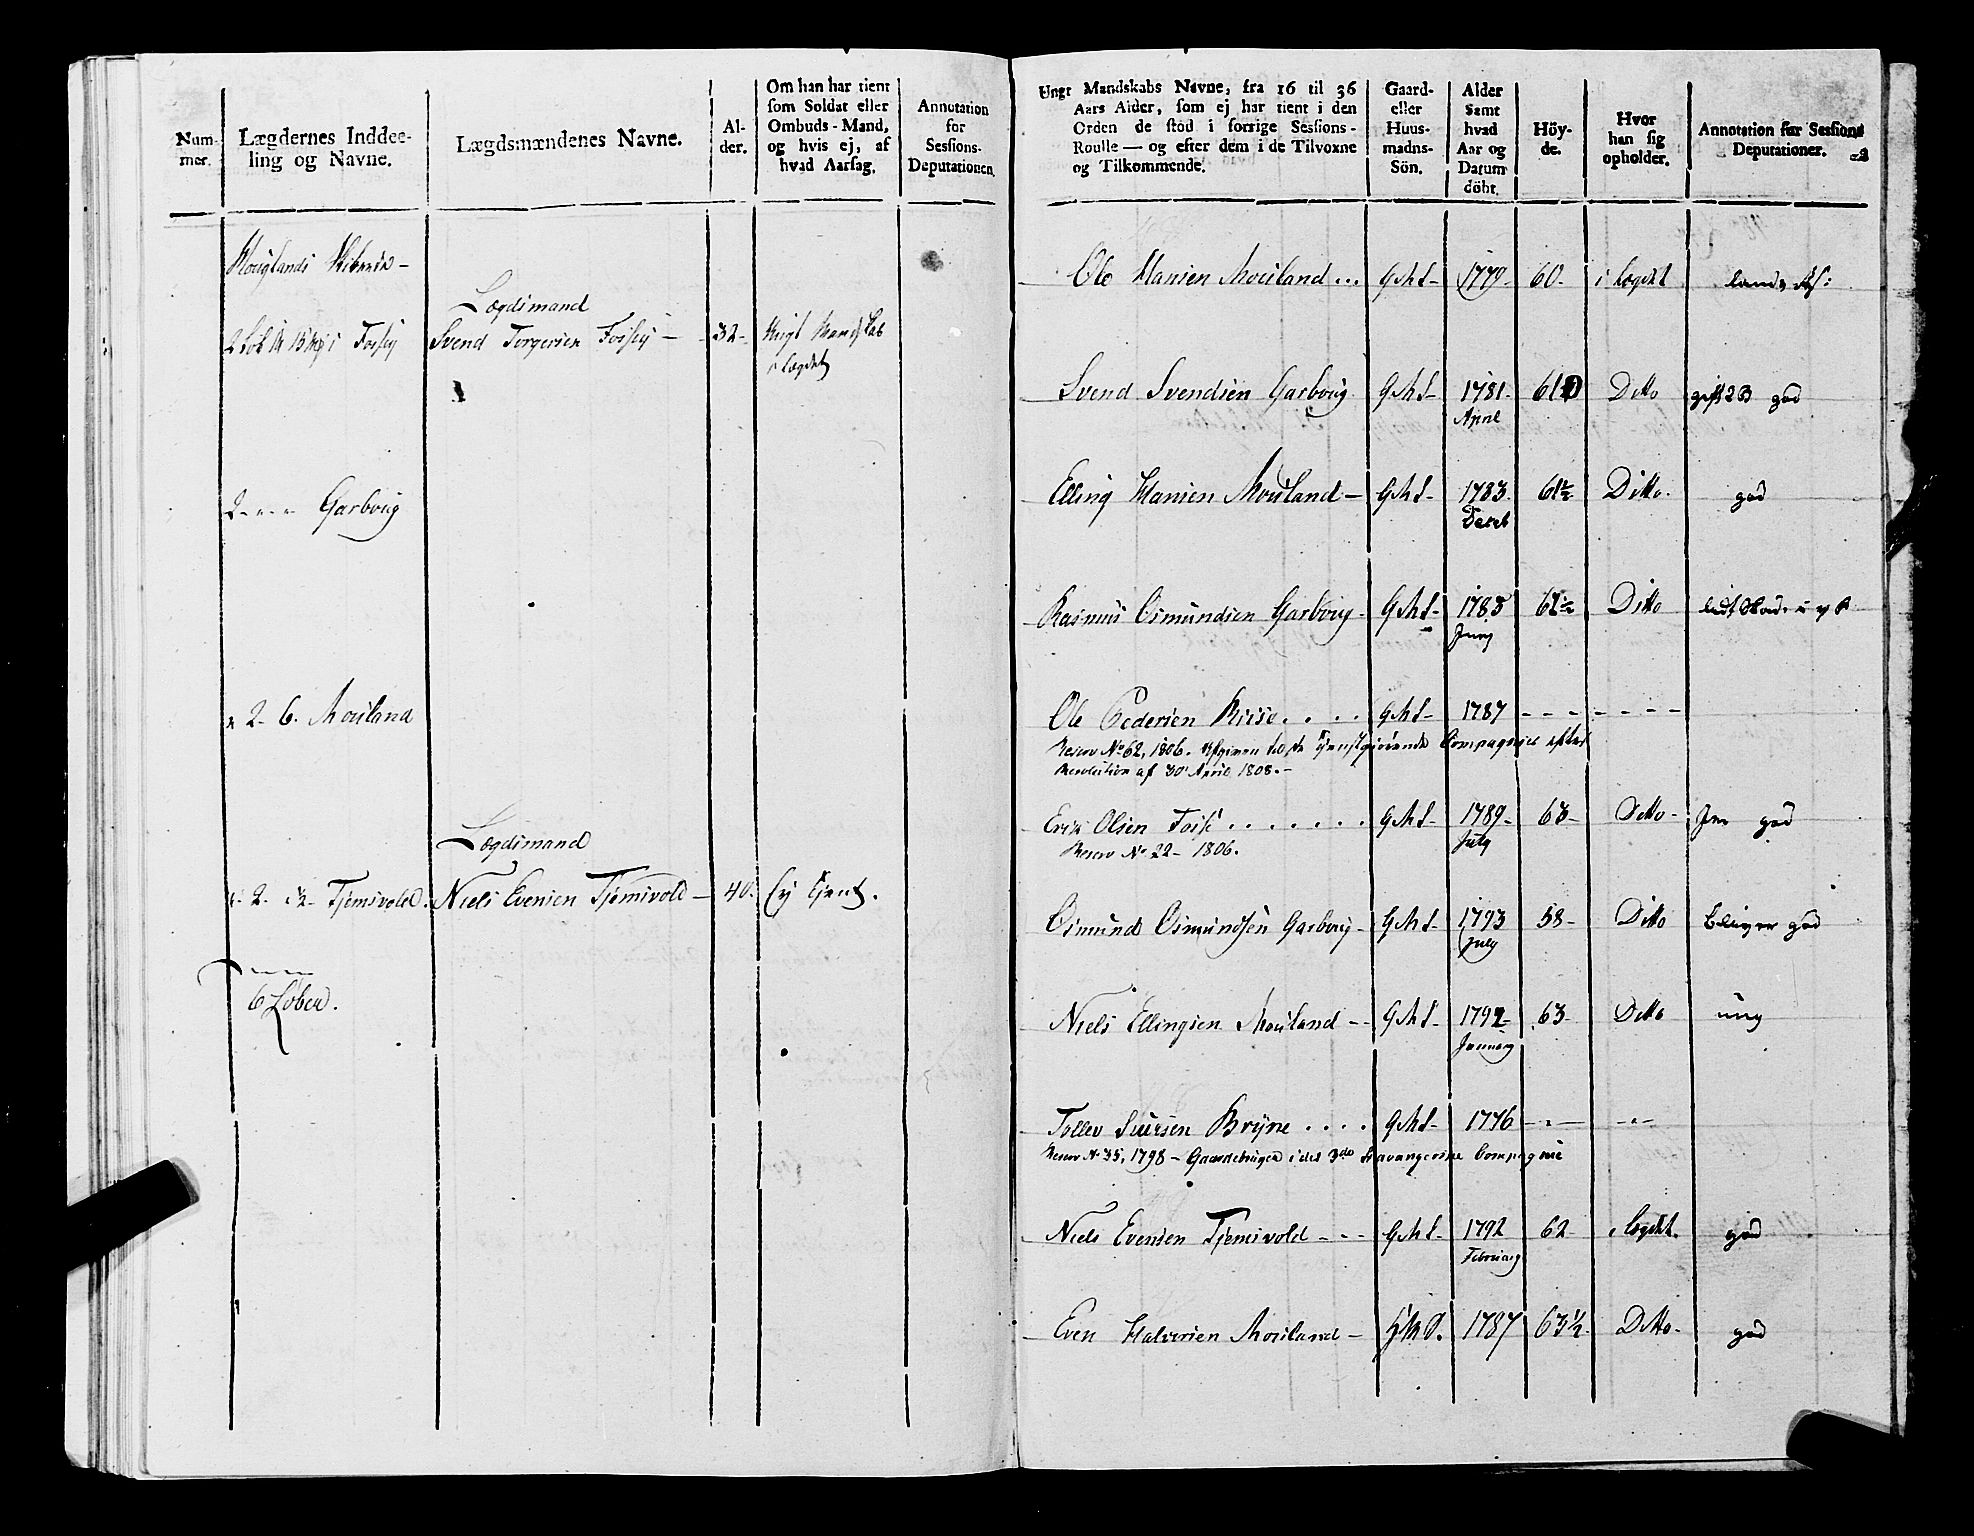 Num-
mer.
Lægdernes Inddee-
ling og Navne.
Lægdsmændenes Navne.
Al-
der.
Om han har tient
som Soldat eller
Ombuds-Mand,
og hvis ej, af
hvad Aarsag.
Annotation
for
Sessions-
Deputationen.
Houglands Skibrede -
Lægdsmand
Fossey
Svend Torgersen Fossey - 32-
i Lægdet
2 - - - Garboug
2 - 6. Mouland
Lægdsmand
2. ½ Tjemsvold. Niels Evensen Tjemsvold - 40. Ey tjent.
6 Løber.
Ungt Mandskabs Navne, fra 16 til 36
Aars Alder, som ej har tient i den
Orden de stod i forrige Sessions-
Roulle — og efter dem i de Tilvoxne
og Tilkommende.
Gaard-
eller
Huus-
madns-
Sön.
Alder
samt
hvad
Aar og
Datum
döbt.
Höy-
de.
Hvor
han sig
opholder.
Annotation for Sessions
Deputationer.
Ole Hansen Mouland ... G M S - 1779 - 60 - i Lægdet
Svend Svendsen Garboug G M S - 1781 - Ditto gift 2 B god
April
Elling Hansen Mouland - G M S - 1783 61½ Ditto. god
Decel
Rasmus Osmundsen Garboug - G M S - 1783 Ditto
Juny
Ole Pedersen Riise . . . . G M S - 1787 - - - - - - -
Reserv No 62, 1806. Afgiven til de tjenstgiørende Compagnier efter
Resolution af 30 April 1808. -
Erik Olsen Fosse . . . . . . . G M S - 1789 - 63 - Ditto - god
July
Reserv No 22 - 1806.
Osmund Osmundsen Garboug - G M S - 1793 58 - Ditto bliver god
July
Niels Ellingsen Mouland - - G M S - 1792 - 63 - Ditto ung
January
Tollev Siursen Bryne . . . . G M S - 1776 - - - - -
Reserv No 35, 1798 - Gaardebruger i det 3die Stavangerske Compagnie
Niels Evensen Tjemsvold - - - G M S - 1792 62 i Lægdet. god
February
Even Halvorsen Mouland - H M S. 1787 63½ Ditto - god